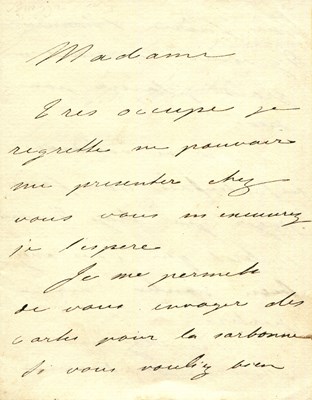 Madame
Tres occupé je
regrette ne pouvoir
me presenter chez
vous vous m'excuserez
je l'espere
Je me permets
de vous envoyer des
cartes pour la sorbonne
Si vous vouliez bien